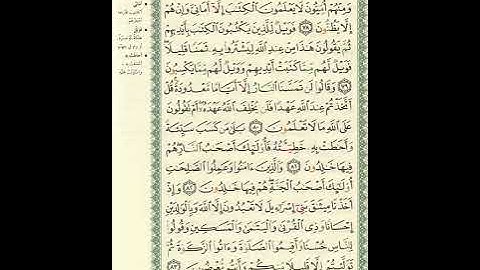 وَمِنْهُمْ أُمِّيُّونَ لَا يَعْلَمُونَ الْكِتَٰبَ إِلَّا أَمَانِيَّ وَإِنْ هُمْ
إِلَّا يَظُنُّونَ ٧٨ فَوَيْلٌ لِّلَّذِينَ يَكْتُبُونَ الْكِتَٰبَ بِأَيْدِيهِمْ
ثُمَّ يَقُولُونَ هَٰذَا مِنْ عِندِ اللَّهِ لِيَشْتَرُوا بِهِ ثَمَنًا قَلِيلًا
فَوَيْلٌ لَّهُم مِّمَّا كَتَبَتْ أَيْدِيهِمْ وَوَيْلٌ لَّهُم مِّمَّا يَكْسِبُونَ
٧٩ وَقَالُوا لَن تَمَسَّنَا النَّارُ إِلَّا أَيَّامًا مَّعْدُودَةً قُلْ
أَتَّخَذْتُمْ عِندَ اللَّهِ عَهْدًا فَلَن يُخْلِفَ اللَّهُ عَهْدَهُ أَمْ تَقُولُونَ
عَلَى اللَّهِ مَا لَا تَعْلَمُونَ ٨٠ بَلَىٰ مَن كَسَبَ سَيِّئَةً
وَأَحَٰطَتْ بِهِ خَطِيـَٔتُهُ فَأُولَٰئِكَ أَصْحَٰبُ النَّارِ هُمْ
فِيهَا خَٰلِدُونَ ٨١ وَالَّذِينَ ءَامَنُوا وَعَمِلُوا الصَّٰلِحَٰتِ
أُولَٰئِكَ أَصْحَٰبُ الْجَنَّةِ هُمْ فِيهَا خَٰلِدُونَ ٨٢ وَإِذْ
أَخَذْنَا مِيثَٰقَ بَنِي إِسْرَٰءِيلَ لَا تَعْبُدُونَ إِلَّا اللَّهَ وَبِالْوَٰلِدَيْنِ
إِحْسَانًا وَذِي الْقُرْبَىٰ وَالْيَتَٰمَىٰ وَالْمَسَٰكِينِ وَقُولُوا
لِلنَّاسِ حُسْنًا وَأَقِيمُوا الصَّلَوٰةَ وَءَاتُوا الزَّكَوٰةَ ثُمَّ
تَوَلَّيْتُمْ إِلَّا قَلِيلًا مِّنكُمْ وَأَنتُم مُّعْرِضُونَ ٨٣